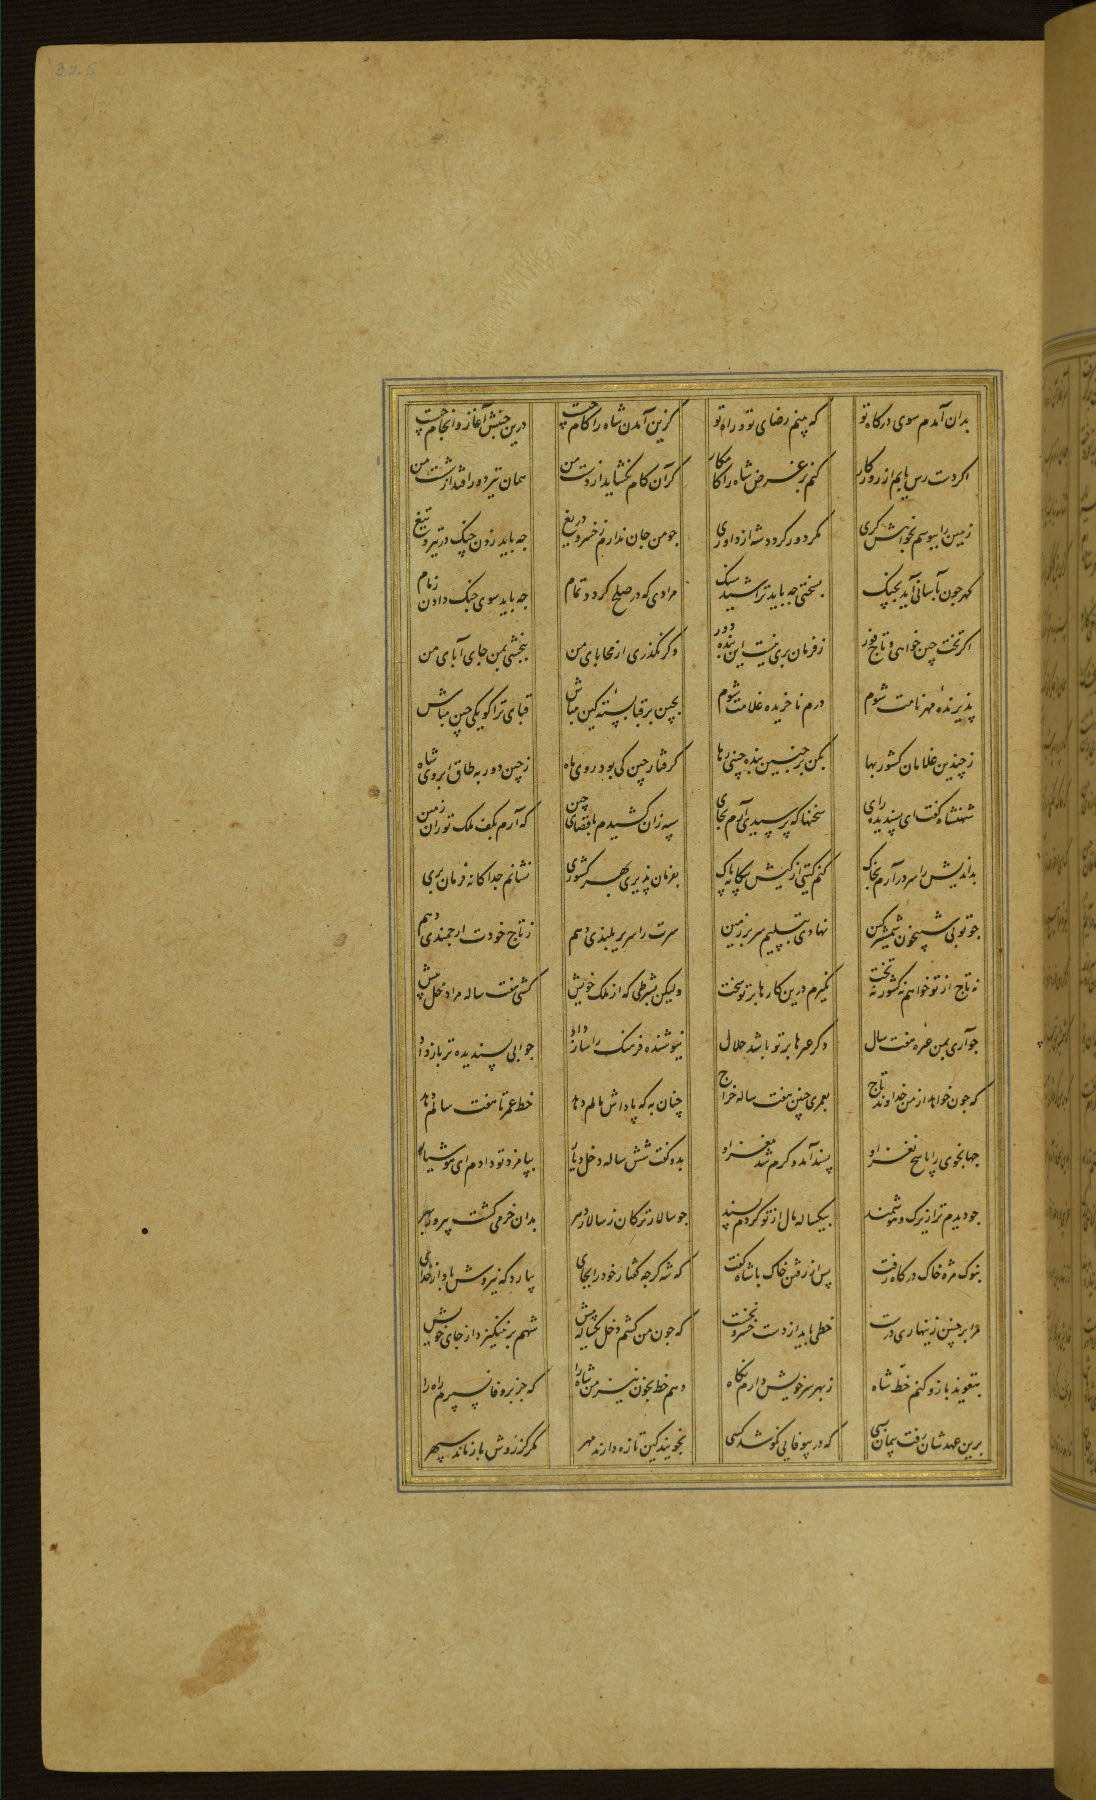 بدان آمدم سوی درکاه تو که بینم رضای تو و راه تو کزین آمدن شاه را کام چیست درین جنبش آغاز و انجام چیست
اکر دست رس یابم از روزکار کنم بر غرض شاه را کامکار کر آن کام نکشاید از دست من همان تیر دور افتد از شست من
زمین را ببوسم بخواهش کری مکر دور کردد شه از داوری جو من جان ندارم ز خسرو دریغ جه باید زدن چنک در تیر و تیغ
کهر جون بآسانی آید بچنک بسختی جه باید تراشید سنک مرادی که در صلح کردد تمام جه باید سوی جنک دادن زمام
اکر تخت چین خواهی و تاج فور ز فرمان بری نیست این بنده دور و کر بکذری از محابای من ببخشی بمن جای آبای من
پذیرندهٔ مهر نامت شوم درم ناخریده غلامت شوم بچین بر قبا بسته کین مباش قبای ترا کو یکی چین مباش
ز چندین غلامان کشور بها بکن بر چنین بنده چینی رها کرفتار چین کی بود روی ماه ز چین دور به طاق ابروی شاه
شهنشاه کفت ای پسندیده رای سخنها که پرسیدی آرم بجای سپه زان کشیدم باقصای چین که آرم بکف ملک توران زمین
بداندیش را سر درآرم بخاک کنم کیتی از کیش بیکانه پاک بفرمان پذیری بهر کشوری نشانم جداکانه فرمان بری
جو تو بی شبیخون شمشیر من نهادی بتسلیم سر بر زمین سرت را سریر بلندی دهم ز تاج خودت ارجمندی دهم
نه تاج از تو خواهم نه کشور نه تخت نکیرم درین کارها بر تو سخت ولیکن بشرطی که از ملک خویش کشی هفت ساله مرا دخل پیش
جو آری بمن عبره هفت سال دکر عبرها بر تو باشد حلال نیوشنده فرهنک را ساز داد جوابی پسندیده تر باز داد
که جون خواهد از من خداوند تاج بعمری چنین هفت ساله خراج چنان به که پاداش مالم دهد خط عمر تا هفت سالم دهد
جهانجوی را پاسخ نغز او پسند آمد و کرم شد مغز او بدو کفت شش ساله دخل دیار بپامزد تو دادم ای هوشیار
جو دیدم ترا زیرک و هوشمند بیکساله مال از تو کردم پسند جو سالار ترکان ز سالار دهر بدان خرمی کشت پیروز بهر
بنوک مژه خاک درکاه رفت پس از رفتن خاک با شاه کفت که شه کرجه کفتار خود را بجای بیارد که نیروش باد از خدای
مرا بر چنین زینهاری درست خطی باید از دست خسرو نخست که جون من کشم دخل یکساله پیش شهم بر نینکیزد از جای خویش
بتعویذ بازو کنم خطّ شاه ز بهر سر خویش دارم نکاه دهم خط بخون نیز من شاه را که جز بر وفا نسپرم راه را
برین عهد شان رفت پیمان بسی که در بیوفایی نکوشد کسی نجویند کین تازه دارند مهر مکر کز روش باز ماند سپهر